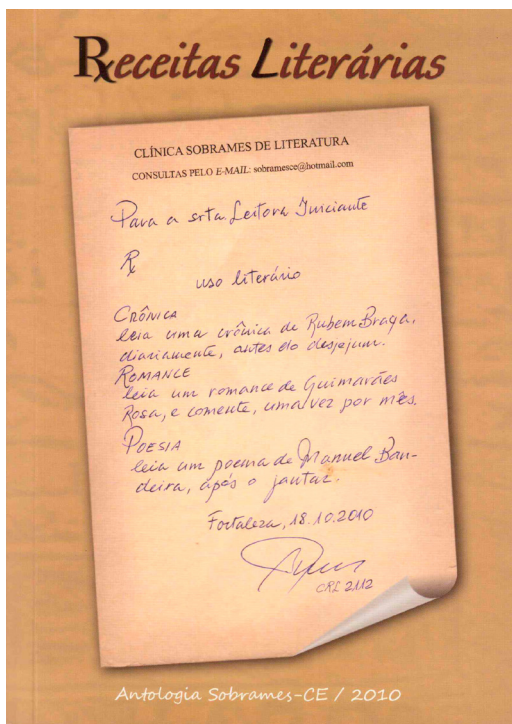 Receitas Literárias
CLÍNICA SOBRAMES DE LITERATURA
CONSULTAS PELO E-MAIL: sobramesce@hotmail.com
Para a srta Leitora Iniciante
Rx
uso literário
CRÔNICA
leia uma crônica de Rubem Braga,
diariamente, antes do desjejum.
ROMANCE
leia um romance de Guimarães
Rosa, e comente, uma vez por mês.
POESIA
leia um poema de Manuel Ban-
deira, após o jantar.
Fortaleza, 18.10.2010
CRL 2112
Antologia Sobrames-CE / 2010